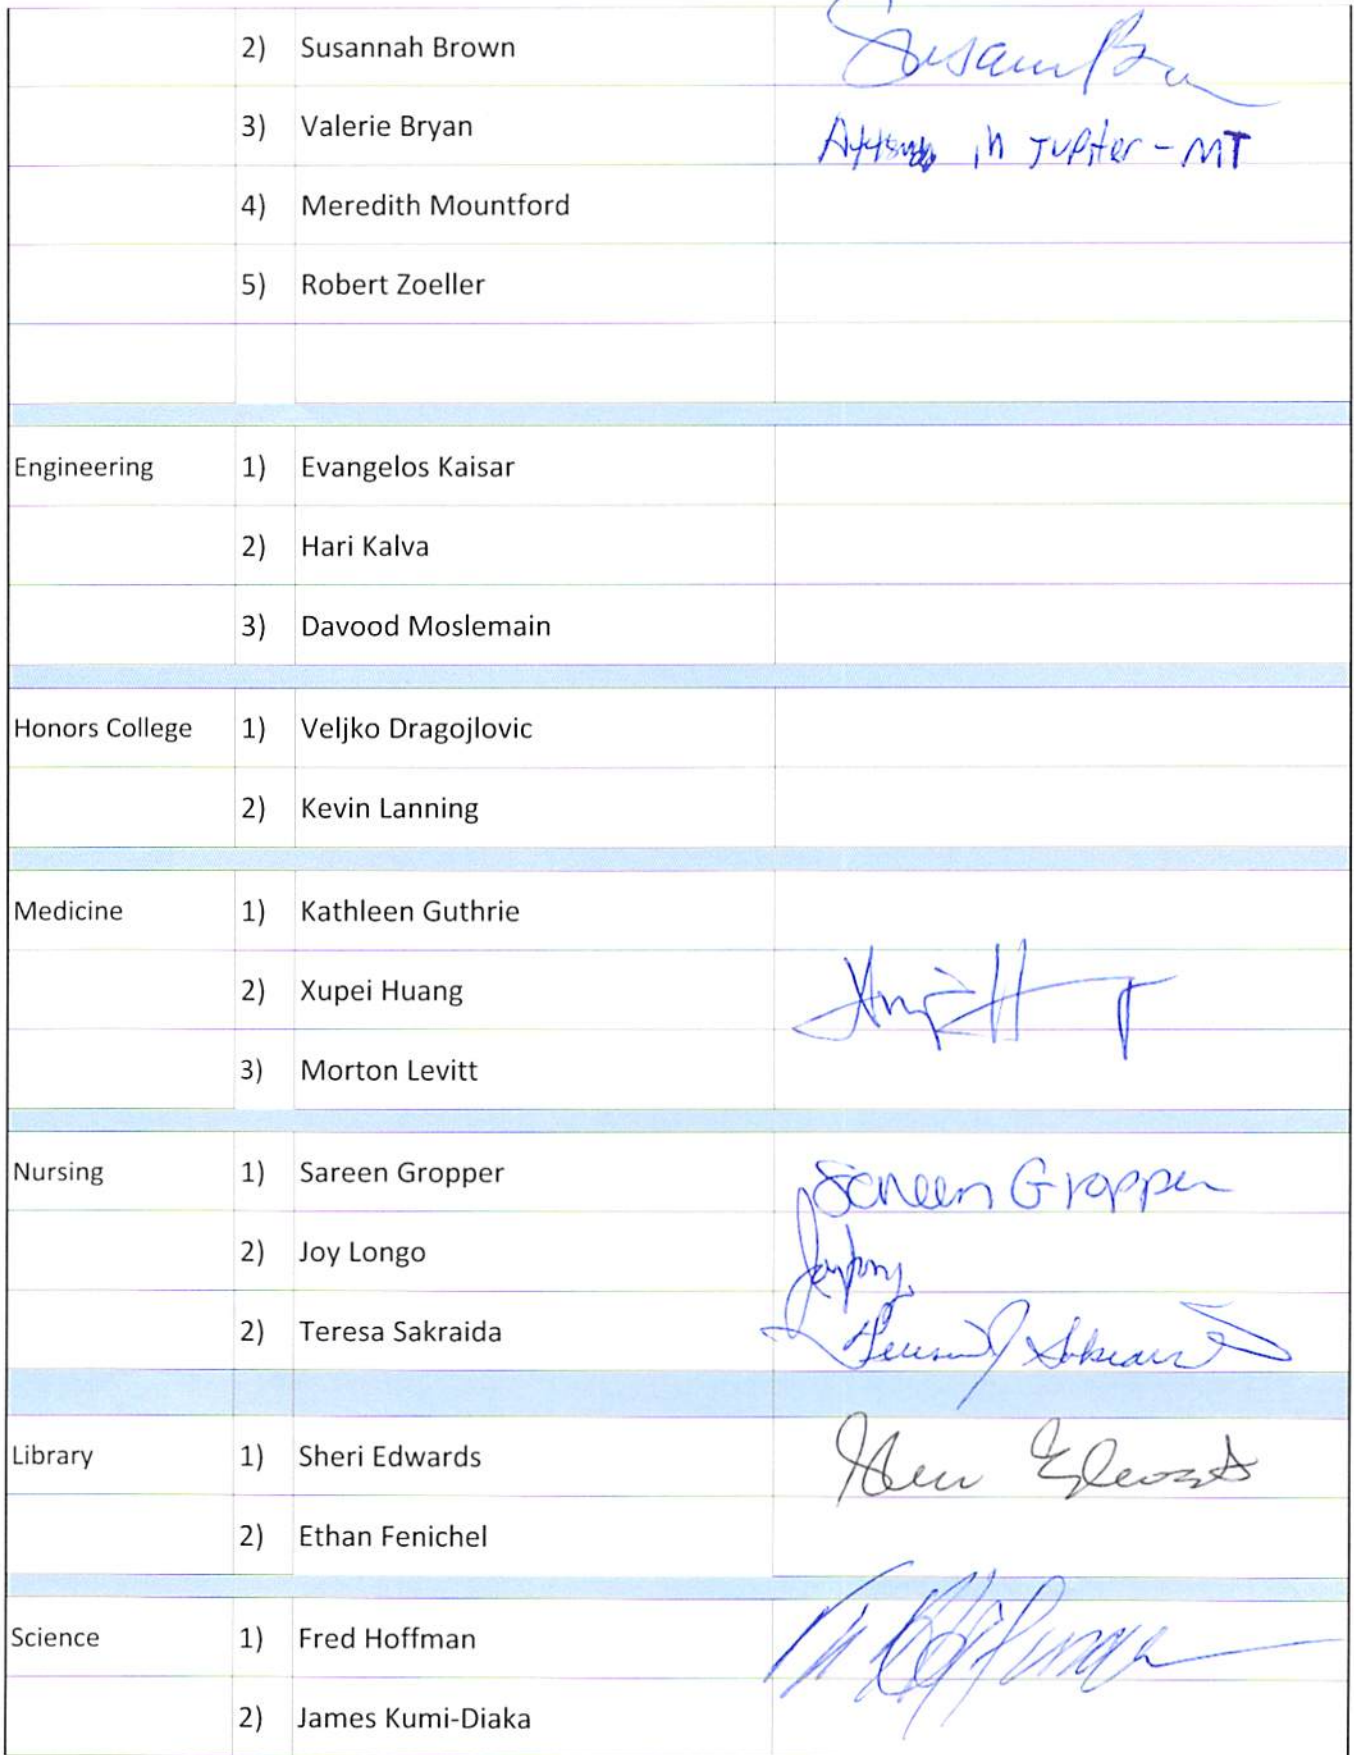 2) Susannah Brown Susann Br
3) Valerie Bryan in Jupiter - MT
4) Meredith Mountford
5) Robert Zoeller
Engineering 1) Evangelos Kaisar
2) Hari Kalva
3) Davood Moslemain
Honors College 1) Veljko Dragojlovic
2) Kevin Lanning
Medicine 1) Kathleen Guthrie
2) Xupei Huang
3) Morton Levitt
Nursing 1) Sareen Gropper Sareen Gropper
2) Joy Longo
2) Teresa Sakraida
Library 1) Sheri Edwards
2) Ethan Fenichel
Science 1) Fred Hoffman Hoffman
2) James Kumi-Diaka